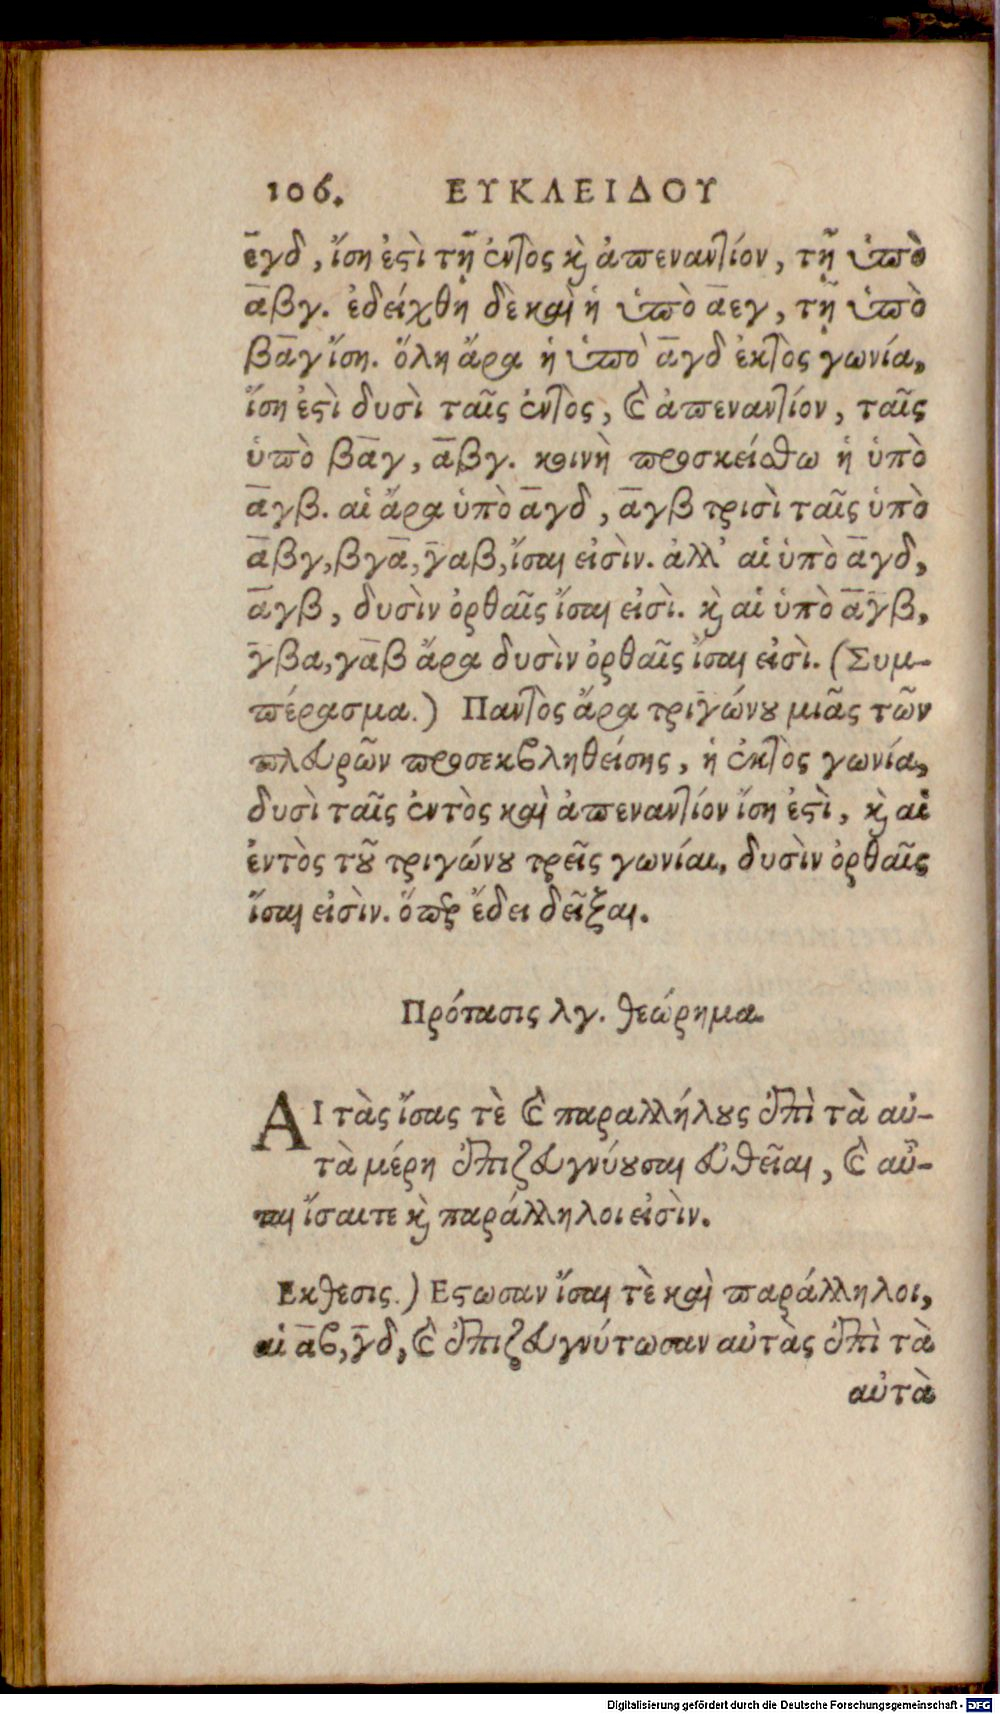 106. ΕΥΚΛΕΙΔΟΥ
ε̄γδ, ἴση ἐϛὶ τῇ ἐντὸς κ̀ ἀπεναντίον, τῇ ὑπὸ
ᾱβγ. ἐδείχθη δὲ καὶ ἡ ὑπὸ ᾱεγ, τῇ ὑπὸ
βᾱγ ἴση. ὅλη ἄρα ἡ ὑπὸ ᾱγδ ἐκτὸς γωνία,
ἴση ἐϛὶ δυσὶ ταῖς ἐντὸς, καὶ ἀπεναντίον, ταῖς
ὑπὸ βᾱγ, ᾱβγ. κοινὴ προσκείσθω ἡ ὑπὸ
ᾱγβ. αἱ ἄρα ὑπὸ ᾱγδ, ᾱγβ τρισὶ ταῖς ὑπὸ
ᾱβγ, βγᾱ, γ̄αβ, ἴσαι εἰσὶν. ἀλλ' αἱ ὑπὸ ᾱγδ,
ᾱγβ, δυσὶν ὀρθαῖς ἴσαι εἰσὶ. κ̀ αἱ ὑπὸ ᾱγ̄β,
γ̄βα, γᾱβ ἄρα δυσὶν ὀρθαῖς ἴσαι εἰσὶ. (Συμ-
πέρασμα.) Παντὸς ἄρα τριγώνȣ μιᾶς τῶν
πλευρῶν προσεκβληθείσης, ἡ ἐκτὸς γωνία,
δυσὶ ταῖς ἐντὸς καὶ ἀπεναντίον ἴση ἐϛὶ, κ̀ αἱ
ἐντὸς τȣ͂ τριγώνȣ τρεῖς γωνίαι, δυσὶν ὀρθαῖς
ἴσαι εἰσὶν. ὅπερ ἔδει δεῖξαι.
Πρότασις λγ. θεώρημα.
ΑΙ τὰς ἴσας τὲ καὶ παραλλήλȣς ἐπὶ τὰ αὐ-
τὰ μέρη ἐπιζευγνύȣσαι εὐθεῖαι, καὶ αὖ-
ται ἴσαι τε κ̀ παράλληλοι εἰσὶν.
Εκθεσις.) Εϛωσαν ἴσαι τὲ καὶ παράλληλοι,
αἱ ᾱβ, γ̄δ, καὶ ἐπιζευγνύτωσαν αὐτὰς ἐπὶ τὰ
αὐτὰ
Digitalisierung gefördert durch die Deutsche Forschungsgemeinschaft - DFG